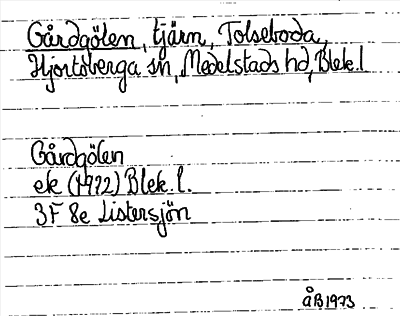 Gårdgölen, tjärn, Tolseboda,
Hjortsberga sn, Medelstads hd, Blek. l
Gårdgölen
ek (1972) Blek. l.
3F 8e Listersjön
åB 1973